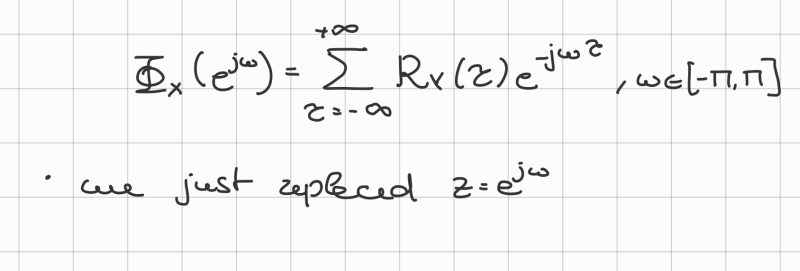 Φₓ(e^{jω}) = \sum_{τ=-∞}^{+∞} Rₓ(τ) e^{-jωτ} , ω∈[-π,π]
· we just replaced z=e^{jω}